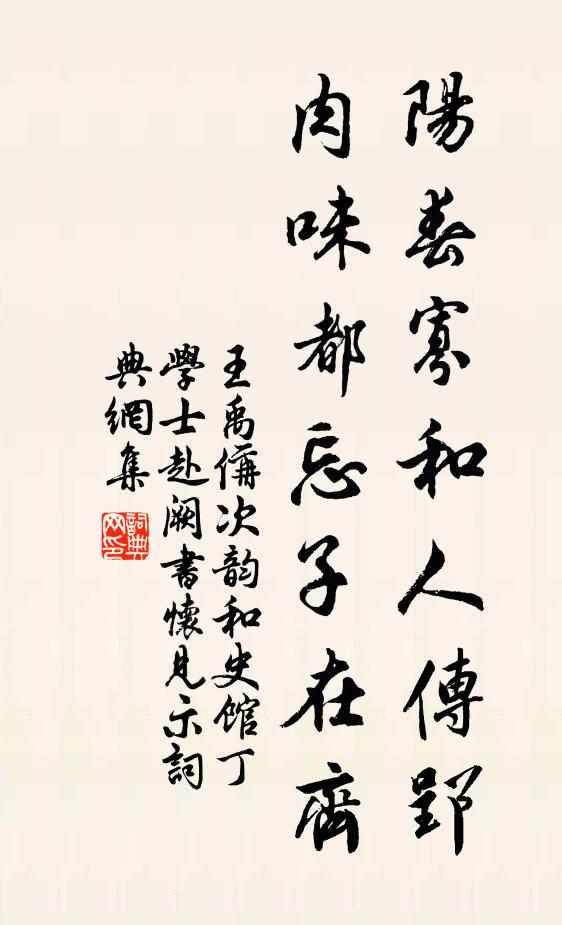 陽春寡和人傳郢
肉味都忘子在齊
王禹偁次韵和史館丁
學士赴闕書懷見示詞
典網集
詞典
网印